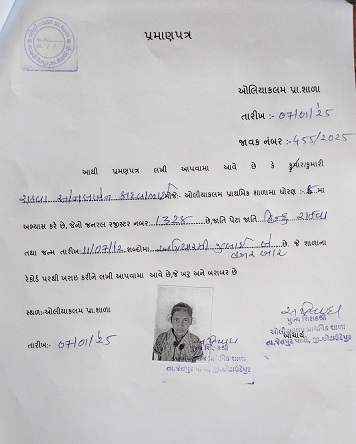 પ્રમાણપત્ર
ઓલિયાકલમ પ્રા.શાળા
તારીખ :- 07/01/25
જાવક નંબર :- 455/2025
આથી પ્રમાણપત્ર લખી આપવામા આવે છે કે કુમાર/કુમારી
રાઠવા ઓલિયાકલમ પ્રાથમિક શાળામા ધોરણ :- મા
અભ્યાસ કરે છે, જેનો જનરલ રજીસ્ટર નંબર 1328 છે,જાતિ પેટા જાતિ હિન્દુ રાઠવા
તથા જન્મ તારીખ 11/07/12 શબ્દોમા અગિયારમી જુલાઈ બે
હજાર બાર છે. જે શાળાના
રેકોર્ડ પરથી ખરાઇ કરીને લખી આપવામા આવે છે,જે બરુ અને બરાબર છે
સ્થળ:-ઓલીયાકલમ પ્રા.શાળા
તારીખ:- 07/01/25
મુખ્ય શિક્ષકશ્રી
ઓલીયાકલમ પ્રાથમિક શાળા
આચાર્ય
તા.જેતપુર પાવી, જી.છોટાઉદેપુર